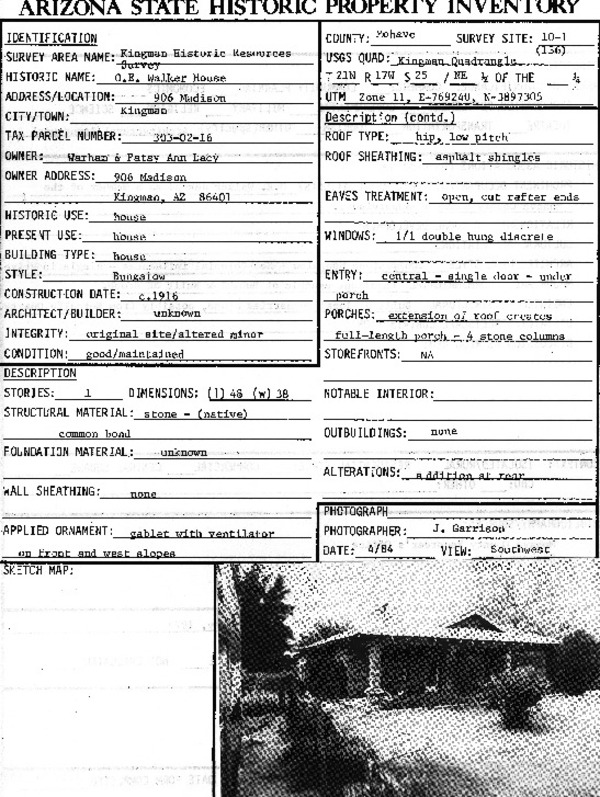 ARIZONA STATE HISTORIC PROPERTY INVENTORY
IDENTIFICATION
SURVEY AREA NAME: Kingman Historic Resources
Survey
HISTORIC NAME: O.E. Walker House
ADDRESS/LOCATION: 906 Madison
CITY/TOWN: Kingman
TAX PARCEL NUMBER: 303-02-16
OWNER: Warham & Patsy Ann Lacy
OWNER ADDRESS: 906 Madison
Kingman, AZ 86401
HISTORIC USE: house
PRESENT USE: house
BUILDING TYPE: house
STYLE: Bungalow
CONSTRUCTION DATE: c.1916
ARCHITECT/BUILDER: unknown
INTEGRITY: original site/altered minor
CONDITION: good/maintained
DESCRIPTION
STORIES: 1 DIMENSIONS: (l) 48 (w) 38
STRUCTURAL MATERIAL: stone - (native)
common bond
FOUNDATION MATERIAL: unknown
WALL SHEATHING: none
APPLIED ORNAMENT: gablet with ventilator
on front and west slopes
SKETCH MAP:
COUNTY: Mohave SURVEY SITE: 10-1
(136)
USGS QUAD: Kingman Quadrangle
T 21N R 17W S 25 / NE ¼ OF THE ¼
UTM Zone 11, E-769240, N-3897305
Description (contd.)
ROOF TYPE: hip, low pitch
ROOF SHEATHING: asphalt shingles
EAVES TREATMENT: open, cut rafter ends
WINDOWS: 1/1 double hung discrete
ENTRY: central - single door - under
porch
PORCHES: extension of roof creates
full-length porch - 4 stone columns
STOREFRONTS: NA
NOTABLE INTERIOR:
OUTBUILDINGS: none
ALTERATIONS: addition at rear
PHOTOGRAPH
PHOTOGRAPHER: J. Garrison
DATE: 4/84 VIEW: Southwest